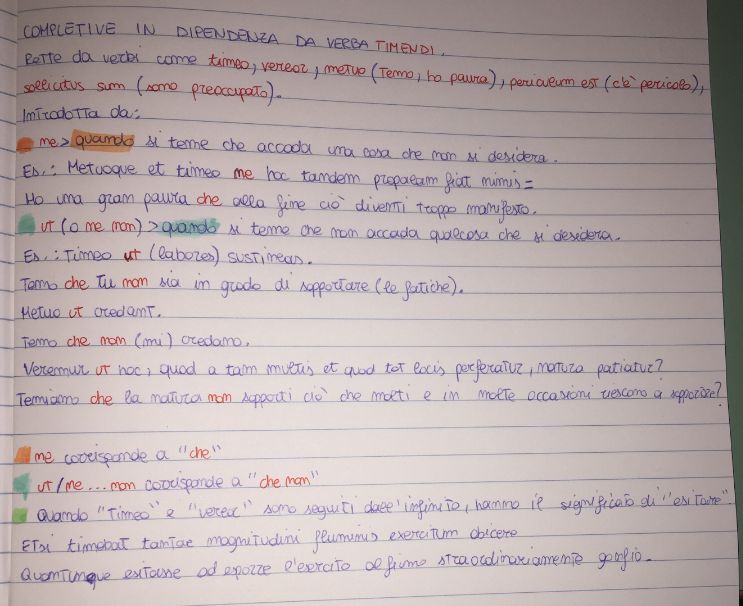 COMPLETIVE IN DIPENDENZA DA VERBA TIMENDI.
Rette da verbi come timeo, vereor, metuo (Temo, ho paura), periculum est (c'è pericolo),
sollicitus sum (sono preoccupato).
Introdotta da:
ne > quando si teme che accada una cosa che non si desidera.
Es.: Metuoque et timeo ne hoc tandem propalam fiat nimis =
Ho una gran paura che alla fine ciò diventi troppo manifesto.
ut (o ne non) > quando si teme che non accada qualcosa che si desidera.
Es.: Timeo ut (labores) sustineas.
Temo che tu non sia in grado di sopportare (le fatiche).
Metuo ut credant.
Temo che non (mi) credano.
Veremur ut hoc, quod a tam multis et quod tot locis perferatur, natura patiatur?
Temiamo che la natura non sopporti ciò che molti e in molte occasioni riescono a sopportare?
ne corrisponde a "che"
ut/ne...non corrisponde a "che non"
Quando "Timeo" e "vereor" sono seguiti dall'infinito, hanno il significato di "esitare".
Etsi timebat tantae magnitudini fluminis exercitum obicere
Quantunque esitasse ad esporre l'esercito al fiume straordinariamente gonfio.